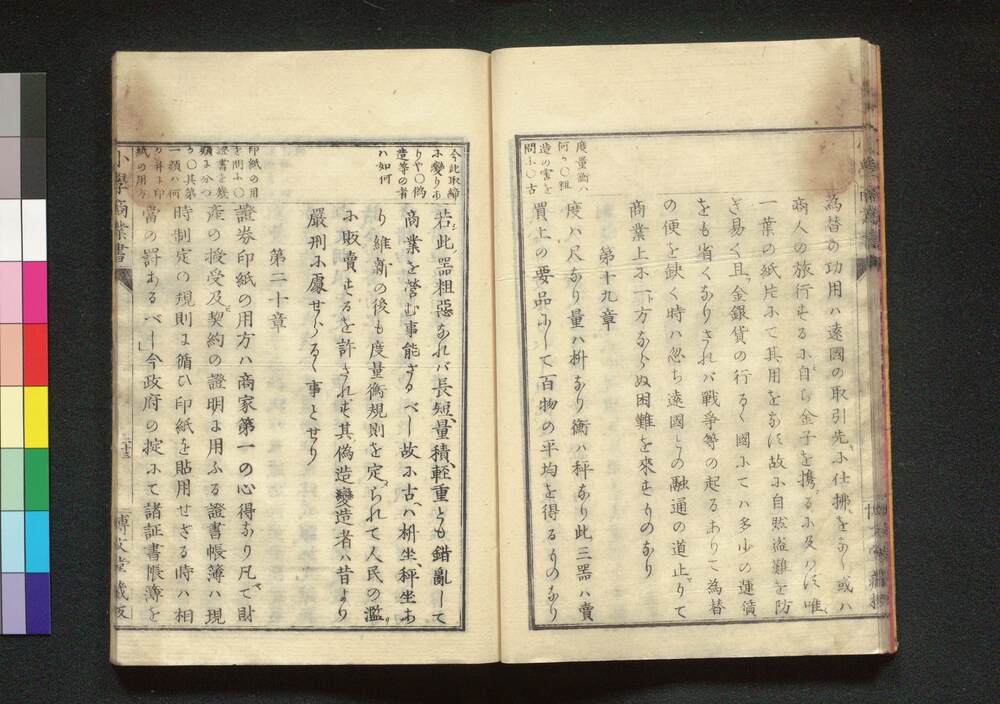 為替の功用ハ遠國の取引先へ仕拂をなし或ハ
商人の旅行する小自ら金子を携るに及はす唯
一葉の紙片にて其用をなす故に自然盗難を防
き易く且金銀貨の行るゝ國にてハ多少の運賃
をも省くなりされバ戦争等の起るありて為替
の便を缺く時ハ忽ち遠國との融通の道止りて
商業上に一方ならぬ困難を來すものなり
第十九章
度ハ尺なり量ハ枡なり衡ハ秤なり此三器ハ賣
買上の要品にして百物の平均を得るものなり
度量衡ハ
何か〇粗
造の害を
問ふ〇古
今此取締
に變りあ
りや〇偽
造等の者
ハ如何
若此器粗惡なれバ長短量積輕重とも錯亂して
商業を營む事能さるべし故に古ハ枡坐秤坐あ
り維新の後も度量衡規則を定られて人民の濫
に販賣するを許されす其偽造變造者ハ昔より
嚴刑に處せらるゝ事とせり
第二十章
印紙の用
を問ふ〇
證書を幾
類に分つ
か〇其第
一類ハ何
か并に印
紙の用方
證券印紙の用方ハ商家第一の心得なり凡て財
產の授受及契約の證明に用ふる證書帳簿ハ現
時制定の規則に循ひ印紙を貼用せさる時ハ相
當の罸あるべし今政府の掟にて諸証書帳簿を
小學商業書
二十三
博文堂藏版